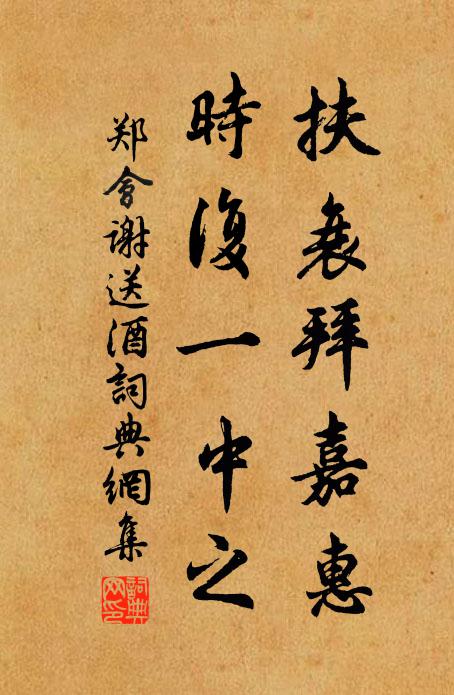 扶衰拜嘉惠
時復一中之
郑會谢送酒詞典網集
詞典网印